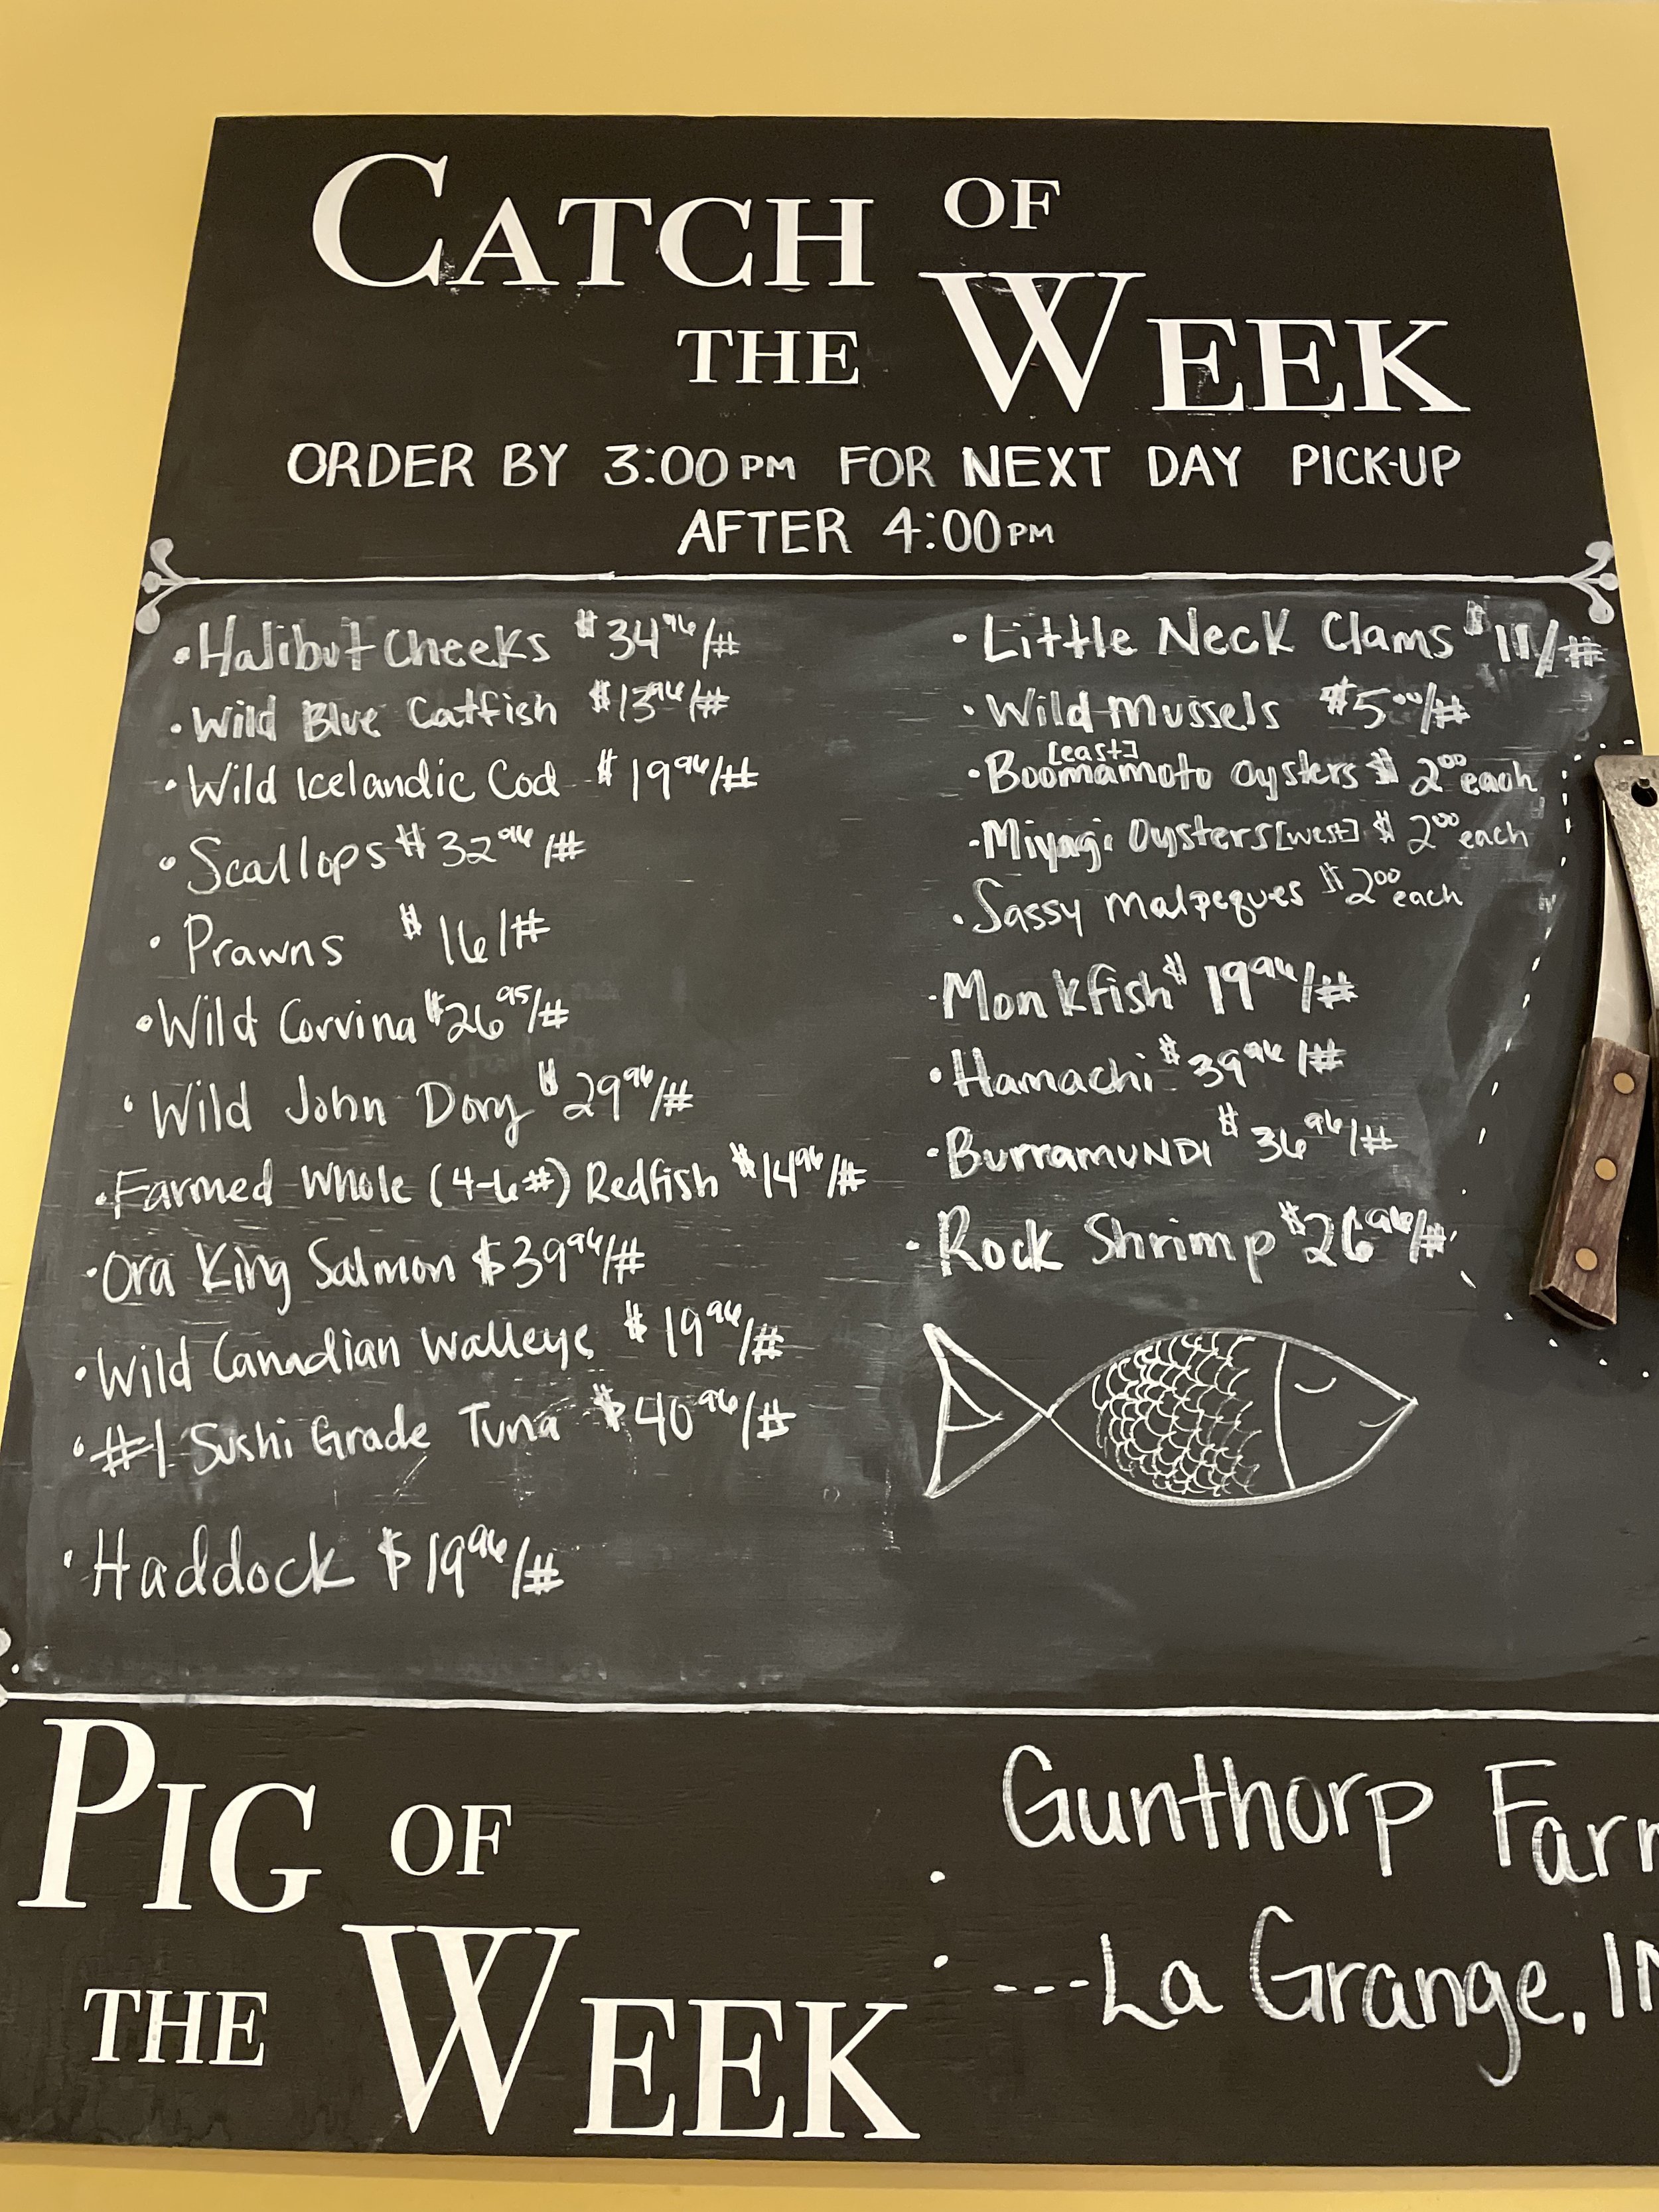 CATCH OF
THE WEEK
ORDER BY 3:00PM FOR NEXT DAY PICK-UP
AFTER 4:00PM
• Halibut Cheeks $34.96/#
• Wild Blue Catfish $13.96/#
• Wild Icelandic Cod $19.96/#
• Scallops $32.96/#
• Prawns $16/#
• Wild Corvina $26.95/#
• Wild John Dory $29.96/#
• Farmed Whole (4-6#) Redfish $14.96/#
• Ora King Salmon $39.96/#
• Wild Canadian Walleye $19.96/#
• #1 Sushi Grade Tuna $40.96/#
• Haddock $19.96/#
• Little Neck Clams $11/#
• Wild Mussels $5.00/#
[east]
• Boomamoto Oysters $2.00 each
• Miyagi Oysters [west] $2.00 each
• Sassy Malpeques $2.00 each
• Monkfish $19.96/#
• Hamachi $39.96/#
• BurramUNDI $36.96/#
• Rock Shrimp $26.96/#
PIG OF
THE WEEK
• Gunthorp Farm
• ---La Grange, IN